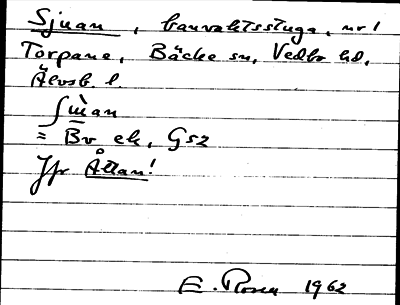 Sjuan, banvaktsstuga, nr 1
Torpane, Bäcke sn, Vedbo hd,
Älvsb. l.
= Bv ek, Gsz
Jfr Åttan!
E. Rosen 1962